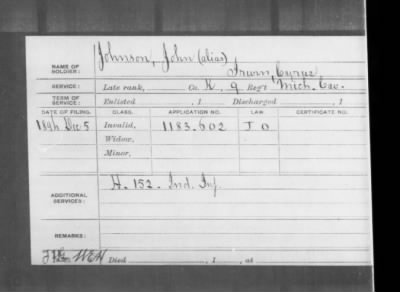 Johnson, John (alias)
NAME OF SOLDIER: Irwin, Cyrus
SERVICE: Late rank, Co. K, 9 Reg't Mich. Cav.
TERM OF SERVICE: Enlisted , 1 Discharged , 1
DATE OF FILING. CLASS. APPLICATION NO. LAW CERTIFICATE NO.
1896 Dec 5 Invalid, 1183.602 J O
Widow,
Minor,
ADDITIONAL SERVICES: H. 152. Ind. Inf.
REMARKS:
WEH Died , 1 , at